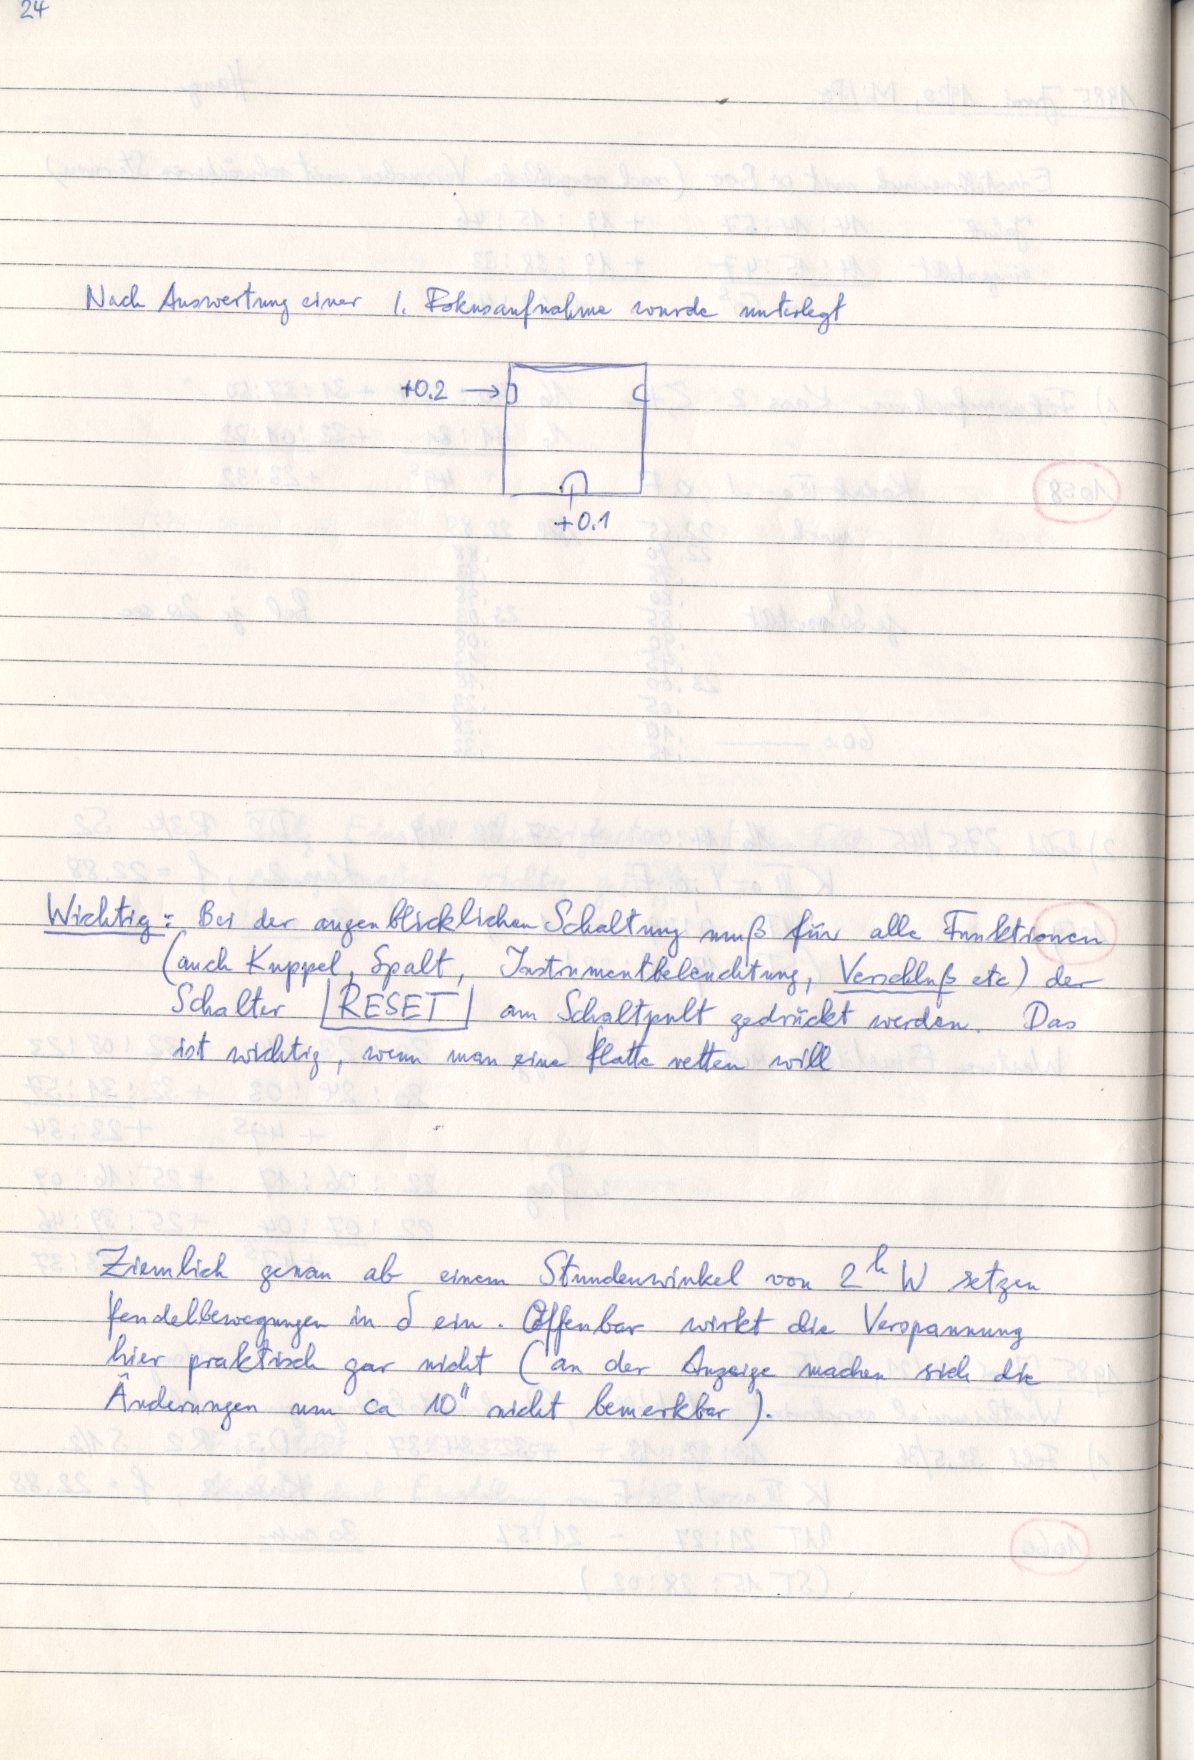 24
Nach Auswertung einer 1. Fokusaufnahme wurde unterlegt
+0.2 →
+0.1
Wichtig: Bei der augenblicklichen Schaltung muß für alle Funktionen
(auch Kuppel, Spalt, Instrumentbeleuchtung, Verschluß etc) der
Schalter RESET am Schaltpult gedrückt werden. Das
ist wichtig, wenn man eine Platte retten will
Ziemlich genau ab einem Stundenwinkel von 2h W setzen
Pendelbewegungen in δ ein. Offenbar wirkt die Verspannung
hier praktisch gar nicht (an der Anzeige machen sich die
Änderungen um ca 10" nicht bemerkbar).